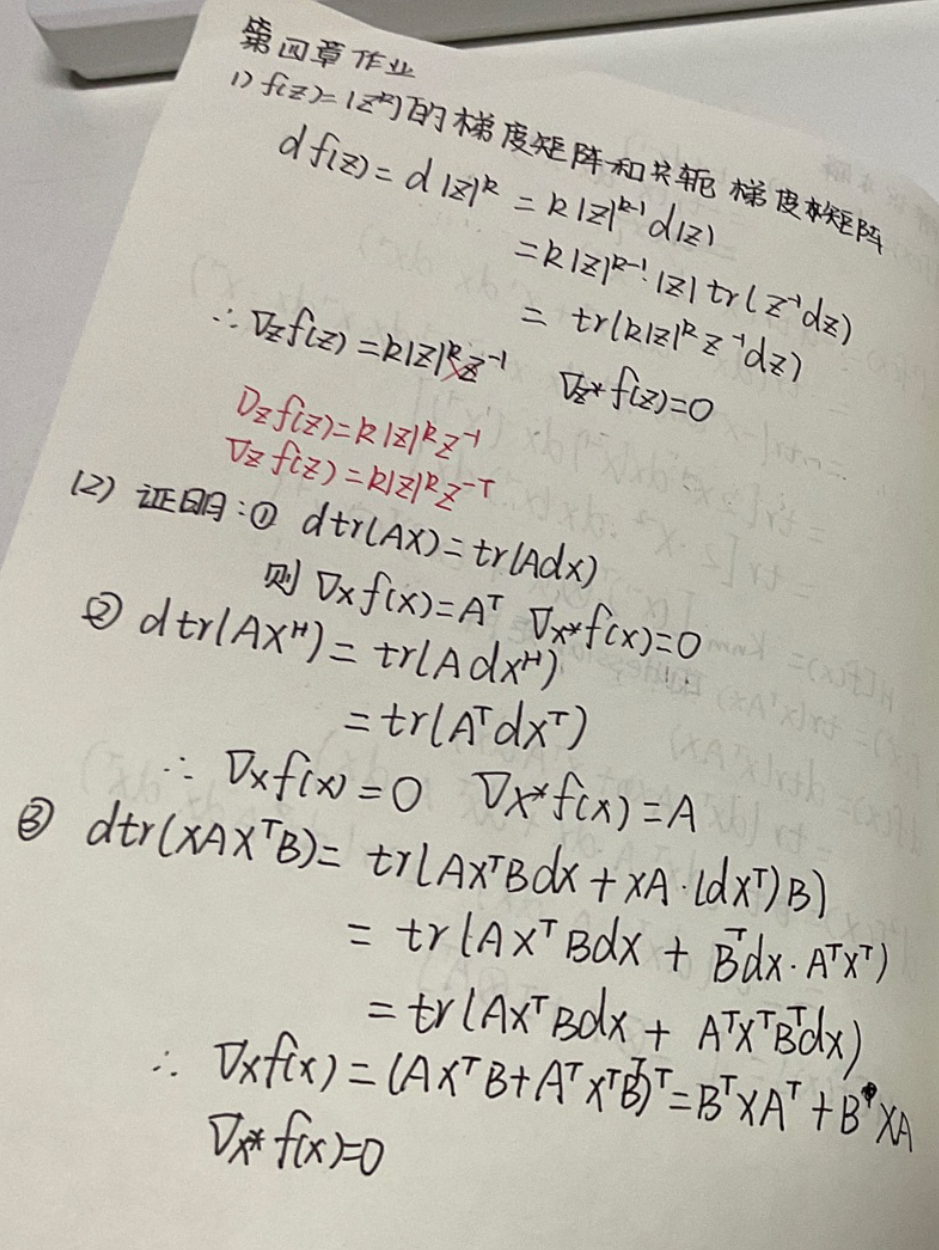 第四章作业
1) f(z)=|z^k|的梯度矩阵和共轭梯度矩阵
d f(z) = d |z|^k = k|z|^{k-1} d|z|
= k|z|^{k-1}·|z| tr(z^{-1}dz)
= tr(k|z|^k z^{-1}dz)
∴ ∇_z f(z) = k|z|^k z^{-1} ∇_{z*} f(z)=0
D_z f(z)=k|z|^k z^{-1}
∇_z f(z)=k|z|^k z^{-T}
(2) 证明:① dtr(AX)=tr(Adx)
则 ∇_x f(x)=A^T ∇_{x*} f(x)=0
② dtr(AX^H) = tr(Adx^H)
= tr(A^T dx^T)
∴ ∇_x f(x)=0 ∇_{x*} f(x)=A
③ dtr(XAX^TB) = tr(AX^TBdx + XA·(dX^T)B)
= tr(AX^TBdx + B^Tdx·A^TX^T)
= tr(AX^TBdx + A^TX^TB^Tdx)
∴ ∇_x f(x) = (AX^TB+A^TX^TB^T)^T = B^TXA^T + BXA
∇_{x*} f(x)=0